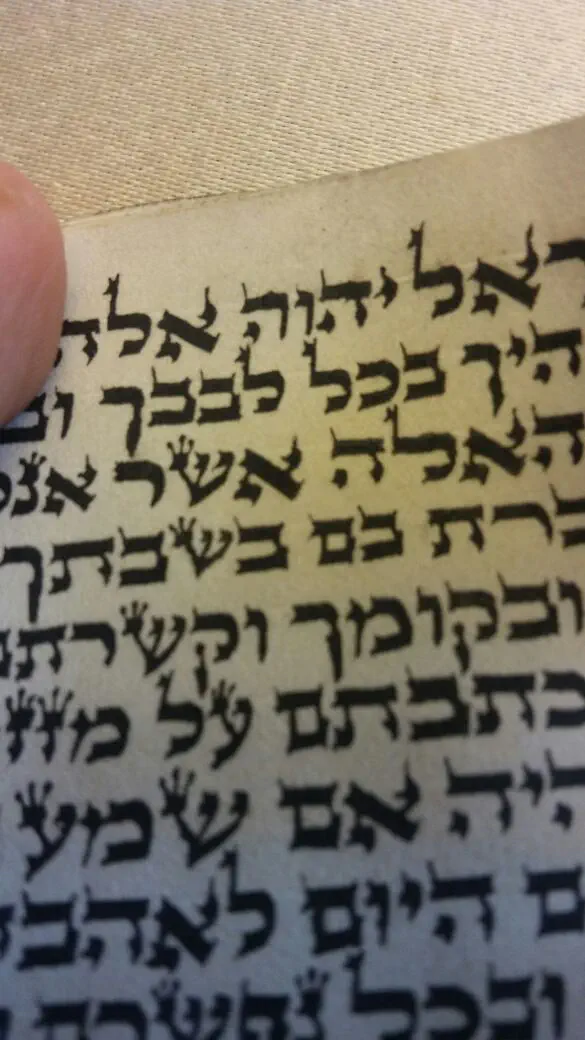 ראל יהוה אלה
היך בכל לבבך וב
האלה אשר אנכ
ברת בם בשבתך
ובקומך וקשרתם
כתבתם על מזז
היה אם שמע
ם היום לאהבה
ובכל נפשכם